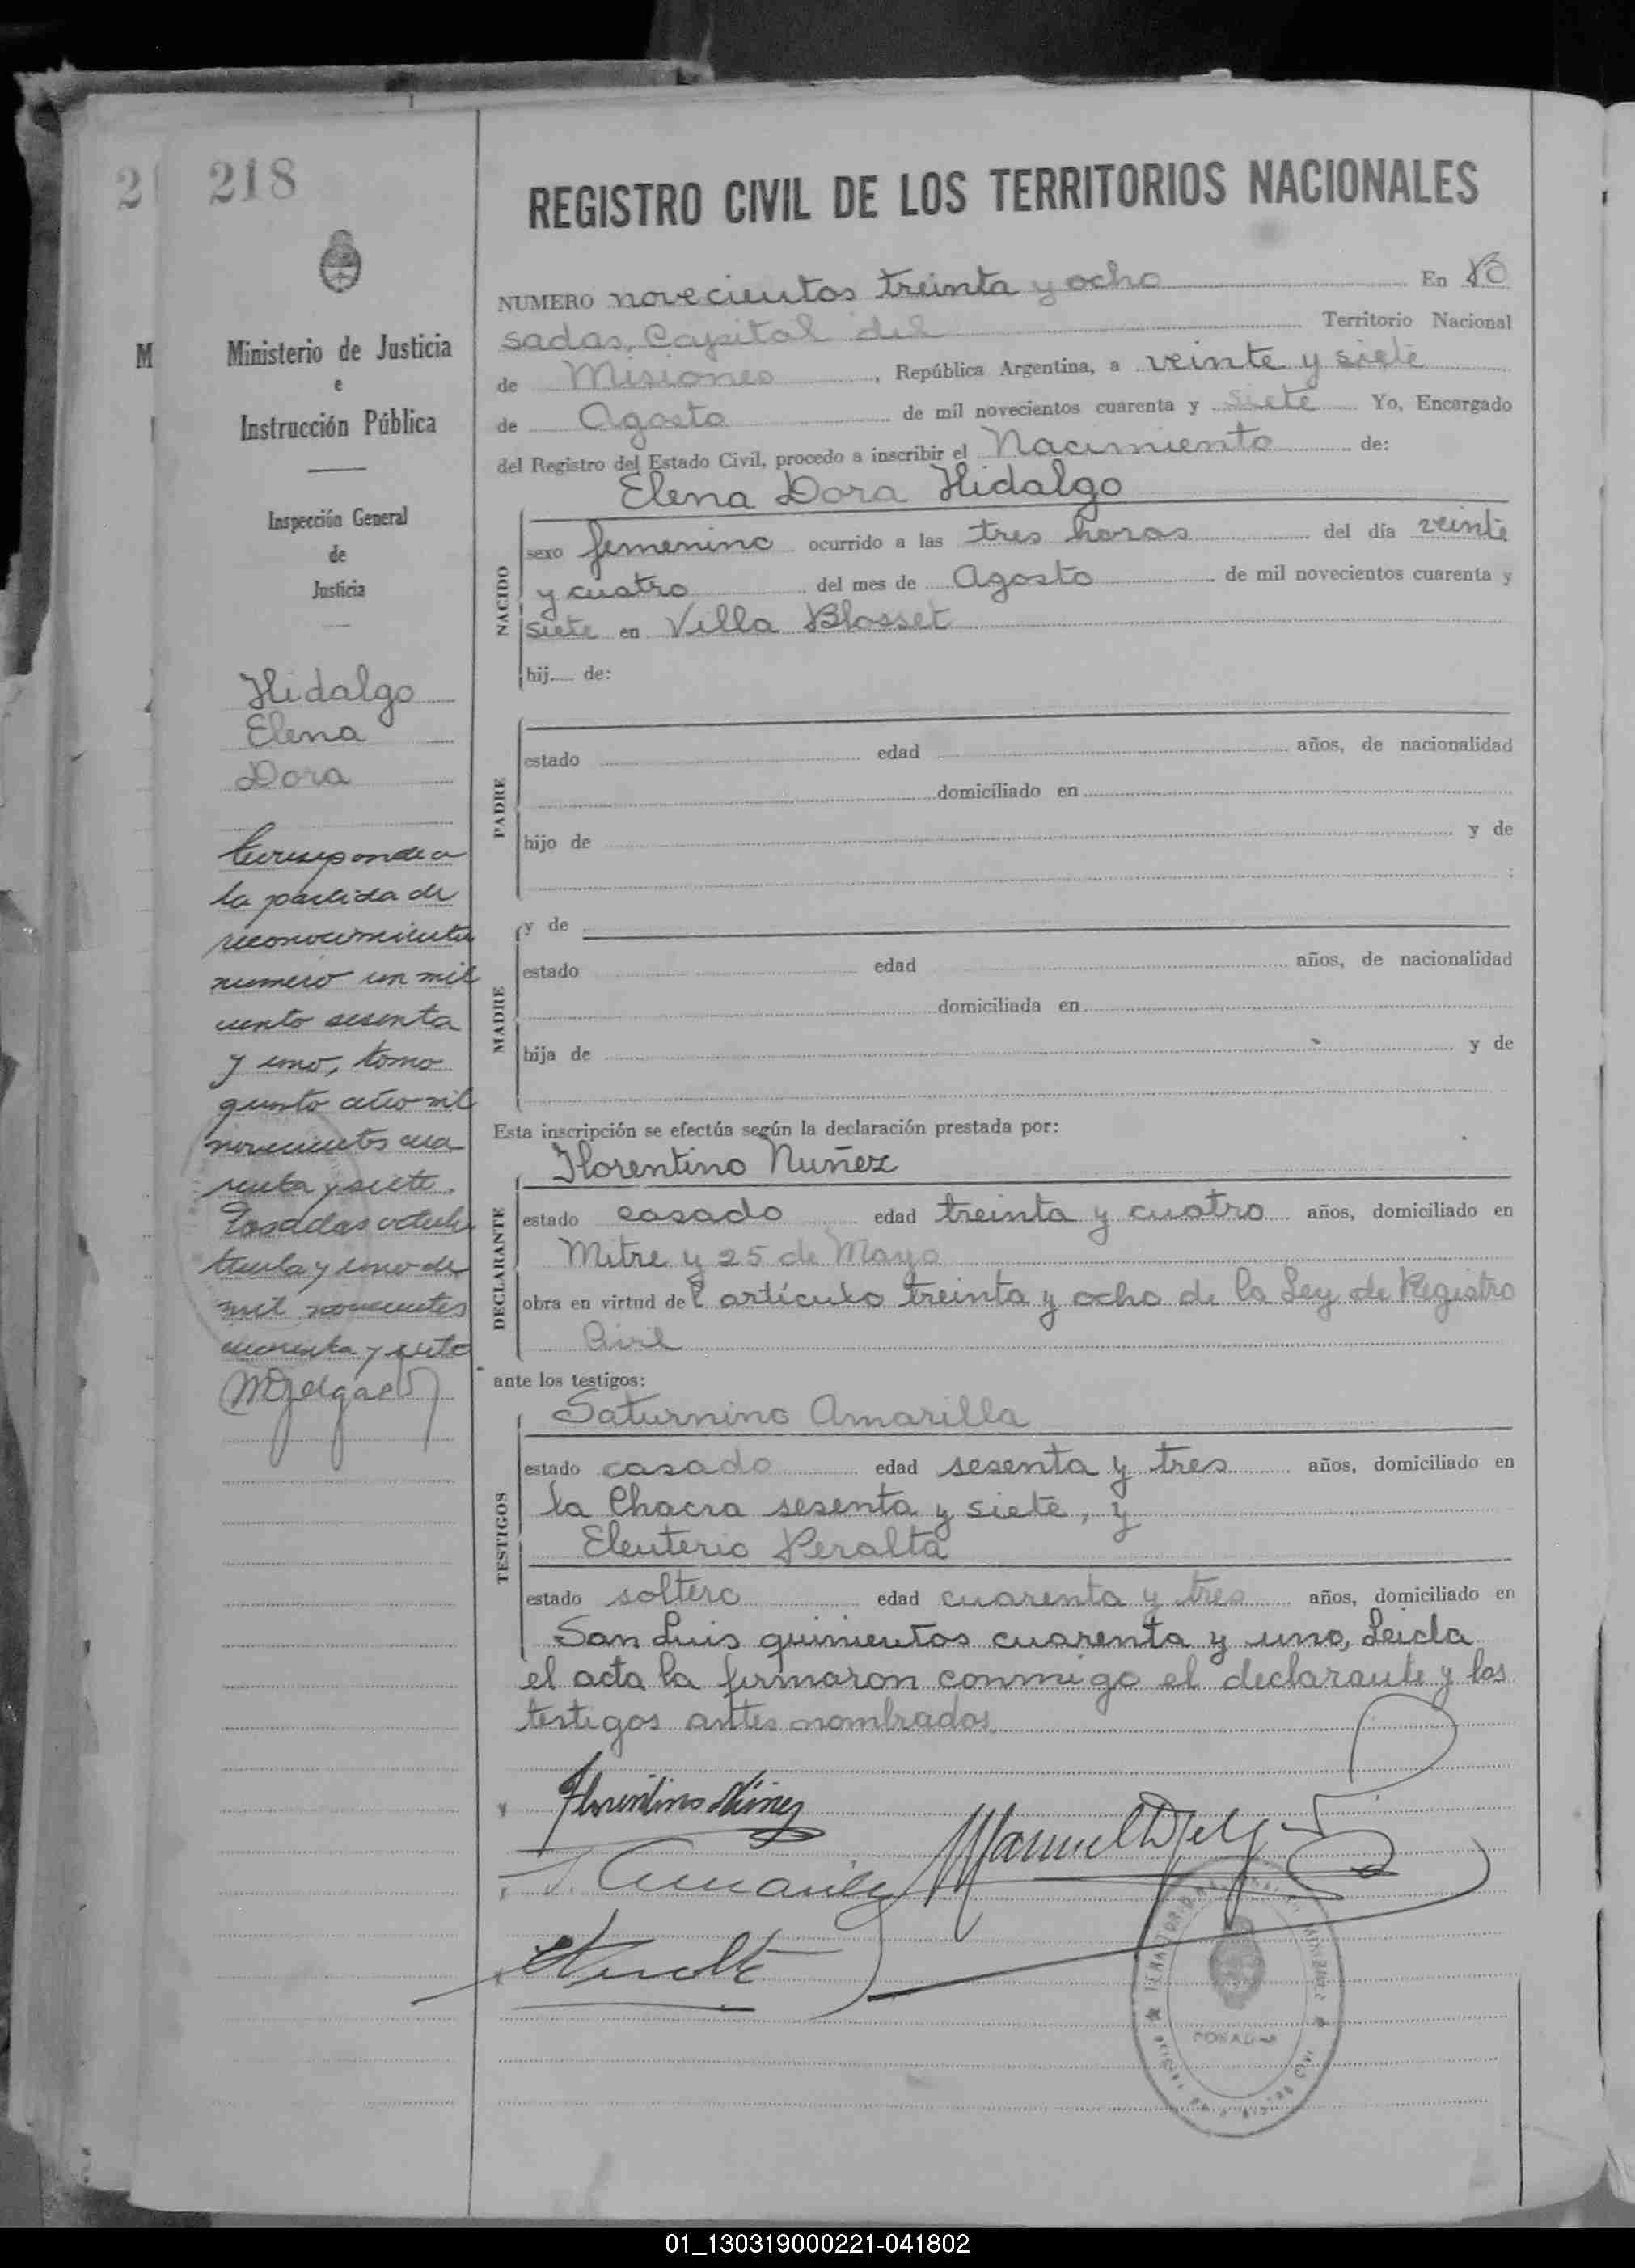 218
2
Ministerio de Justicia
e
Instrucción Pública
Inspección General
de
Justicia
M
Hidalgo
Elena
Dora
Corresponde a
la partida de
reconocimiento
numero un mil
ciento sesenta
y uno, tomo
quinto año mil
novecientos cua
renta y siete.
Posadas octubre
treinta y uno de
mil novecientos
cuarenta y siete
REGISTRO CIVIL DE LOS TERRITORIOS NACIONALES
NUMERO novecientos treinta y ocho En Po
sadas, Capital del Territorio Nacional
de Misiones, República Argentina, a veinte y siete
de Agosto de mil novecientos cuarenta y siete Yo, Encargado
del Registro del Estado Civil, procedo a inscribir el Nacimiento de:
Elena Dora Hidalgo
NACIDO
sexo femenino ocurrido a las tres horas del día veinte
y cuatro del mes de Agosto de mil novecientos cuarenta y
siete en Villa Blosset
hij de:
PADRE
estado edad años, de nacionalidad
domiciliado en
hijo de y de
;
MADRE
y de
estado edad años, de nacionalidad
domiciliada en
hija de y de
Esta inscripción se efectúa según la declaración prestada por:
DECLARANTE
Florentino Nuñez
estado casado edad treinta y cuatro años, domiciliado en
Mitre y 25 de Mayo
obra en virtud del artículo treinta y ocho de la Ley de Registro
Civil
ante los testigos:
TESTIGOS
Saturnino Amarilla
estado casado edad sesenta y tres años, domiciliado en
la Chacra sesenta y siete, y
Eleuterio Peralta
estado soltero edad cuarenta y tres años, domiciliado en
San Luis quinientos cuarenta y uno, Leida
el acta la firmaron conmigo el declarante y los
testigos antes nombrados
Florentino Núñez
POSADAS
01_130319000221-041802